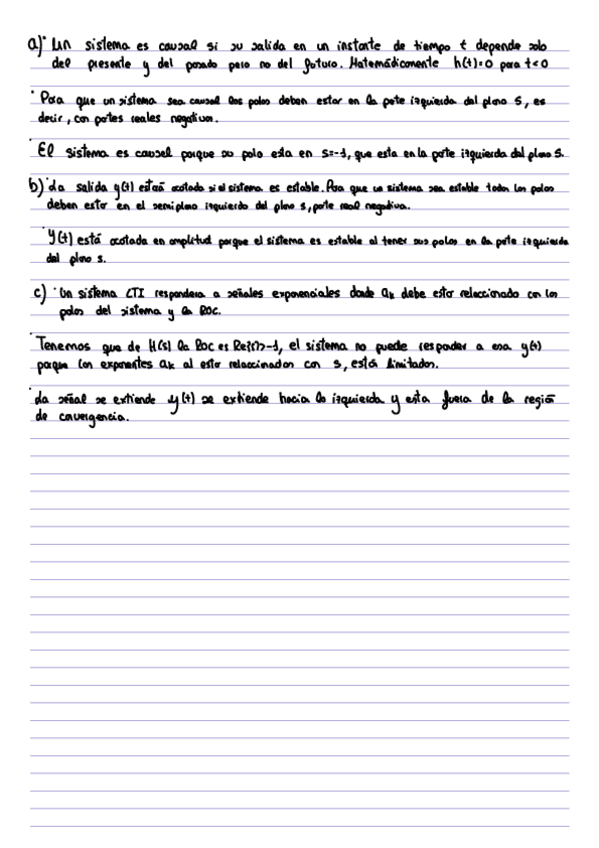 a) · Un sistema es causal si su salida en un instante de tiempo t depende solo
del presente y del pasado pero no del futuro. Matemáticamente h(t)=0 para t<0
· Para que un sistema sea causal los polos deben estar en la parte izquierda del plano S, es
decir, con partes reales negativas.
· El sistema es causal porque su polo esta en s=-1, que esta en la parte izquierda del plano S.
b) · La salida y(t) estará acotada si el sistema es estable. Para que un sistema sea estable todos los polos
deben estar en el semiplano izquierdo del plano s, parte real negativa.
· Y(t) está acotada en amplitud porque el sistema es estable al tener sus polos en la parte izquierda
del plano s.
c) · Un sistema LTI respondera a señales exponenciales donde ak debe estar relacionado con los
polos del sistema y la ROC.
· Tenemos que de H(s) la Roc es Re{s}>-1, el sistema no puede responder a esa y(t)
porque los exponentes ak al estar relacionados con s, están limitados.
· La señal se extiende y(t) se extiende hacia la izquierda y esta fuera de la región
de convergencia.